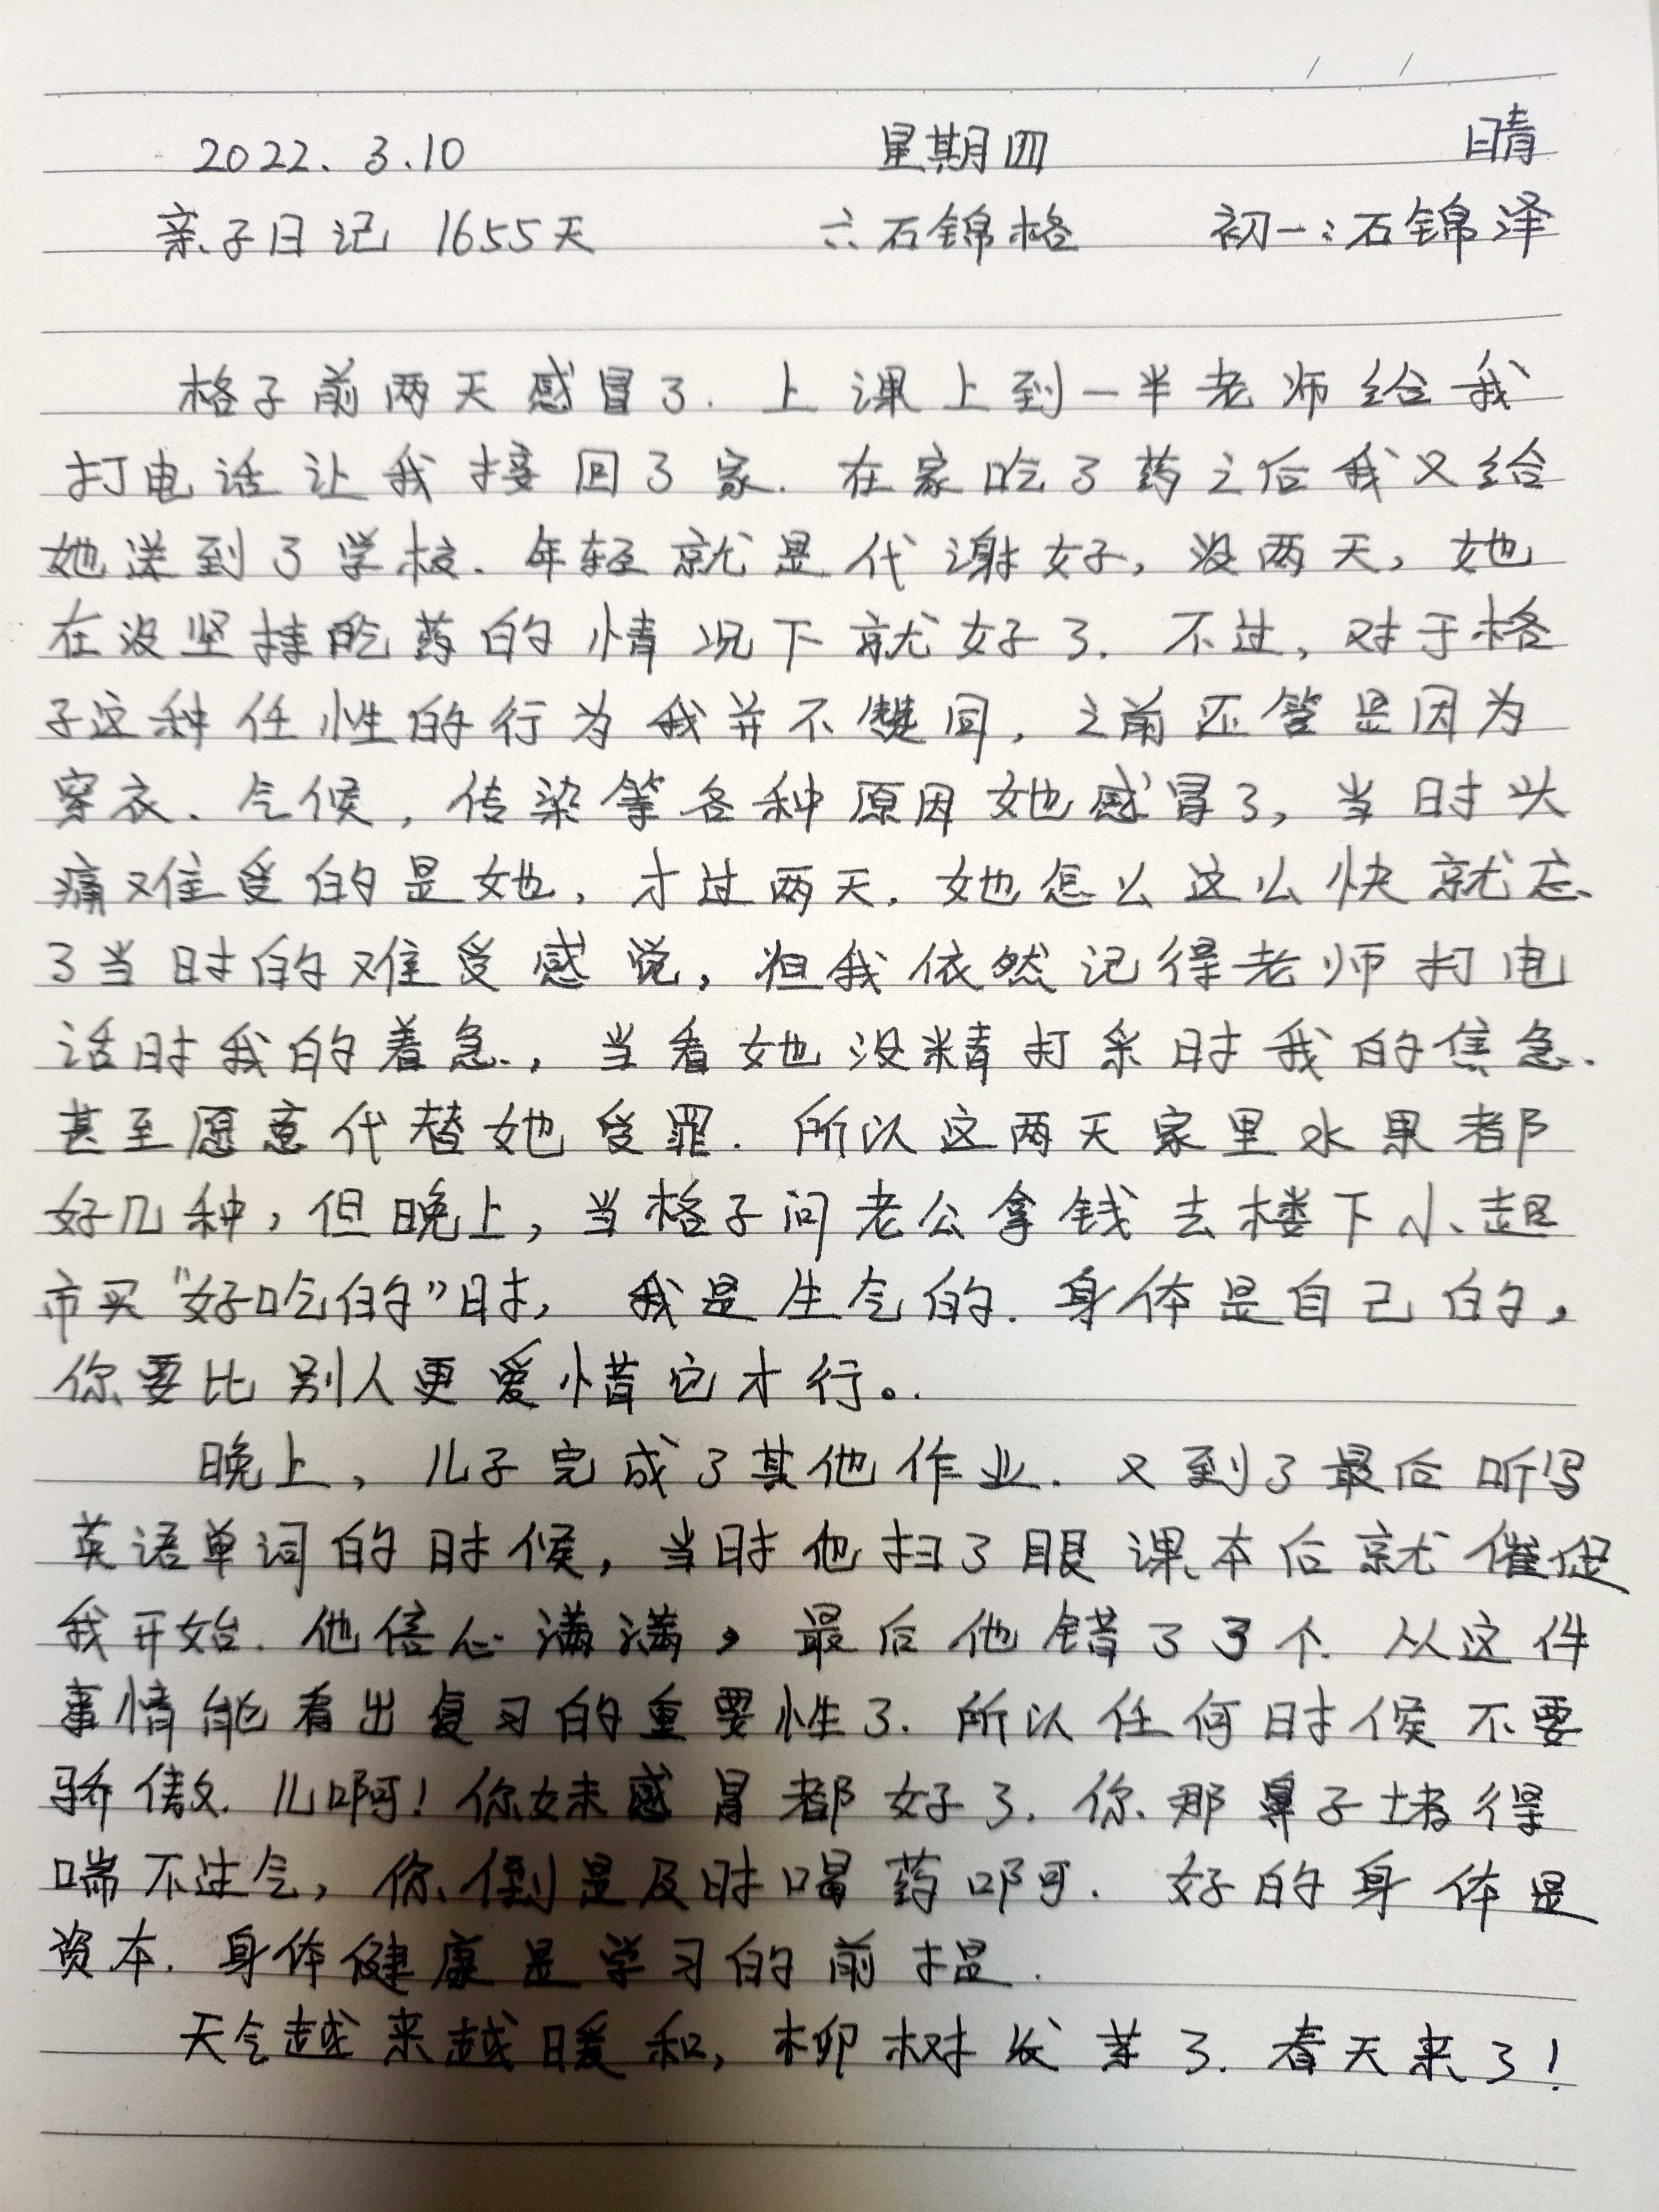 2022.3.10 星期四 晴
亲子日记 1655天 六石锦格 初一:石锦泽
格子前两天感冒了.上课上到一半老师给我
打电话让我接回了家.在家吃了药之后我又给
她送到了学校.年轻就是代谢好,没两天,她
在没坚持吃药的情况下就好了.不过,对于格
子这种任性的行为我并不赞同,之前不管是因为
穿衣、气候,传染等各种原因她感冒了,当时头
痛难受的是她,才过两天.她怎么这么快就忘
了当时的难受感觉,但我依然记得老师打电
话时我的着急.,当看她没精打采时我的焦急.
甚至愿意代替她受罪.所以这两天家里水果都
好几种,但晚上,当格子问老公拿钱去楼下小超
市买“好吃的”时,我是生气的.身体是自己的,
你要比别人更爱惜它才行。.
晚上,儿子完成了其他作业.又到了最后听写
英语单词的时候,当时他扫了眼课本后就催促
我开始.他信心满满,最后他错了3个.从这件
事情能看出复习的重要性了.所以任何时候不要
骄傲.儿啊!你妹感冒都好了.你那鼻子堵得
喘不过气,你倒是及时喝药啊.好的身体是
资本.身体健康是学习的前提.
天气越来越暖和,柳树发芽了.春天来了!